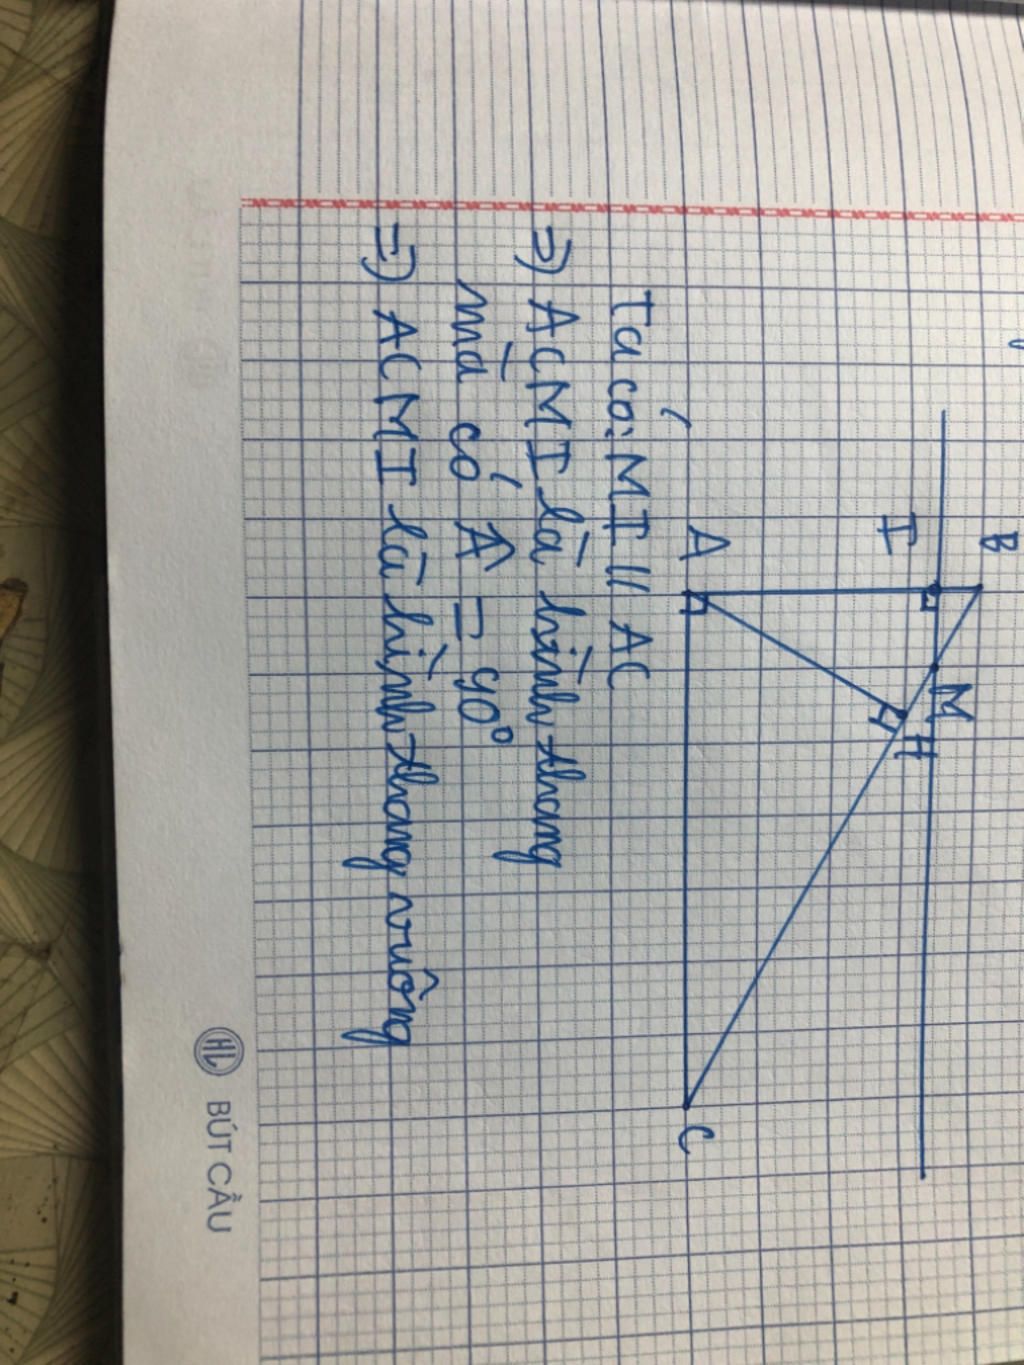 B
I
M
H
A
C
Ta có: MI // AC
=> ACMI là hình thang
mà có Â = 90°
=> ACMI là hình thang vuông
HL BÚT CẦU